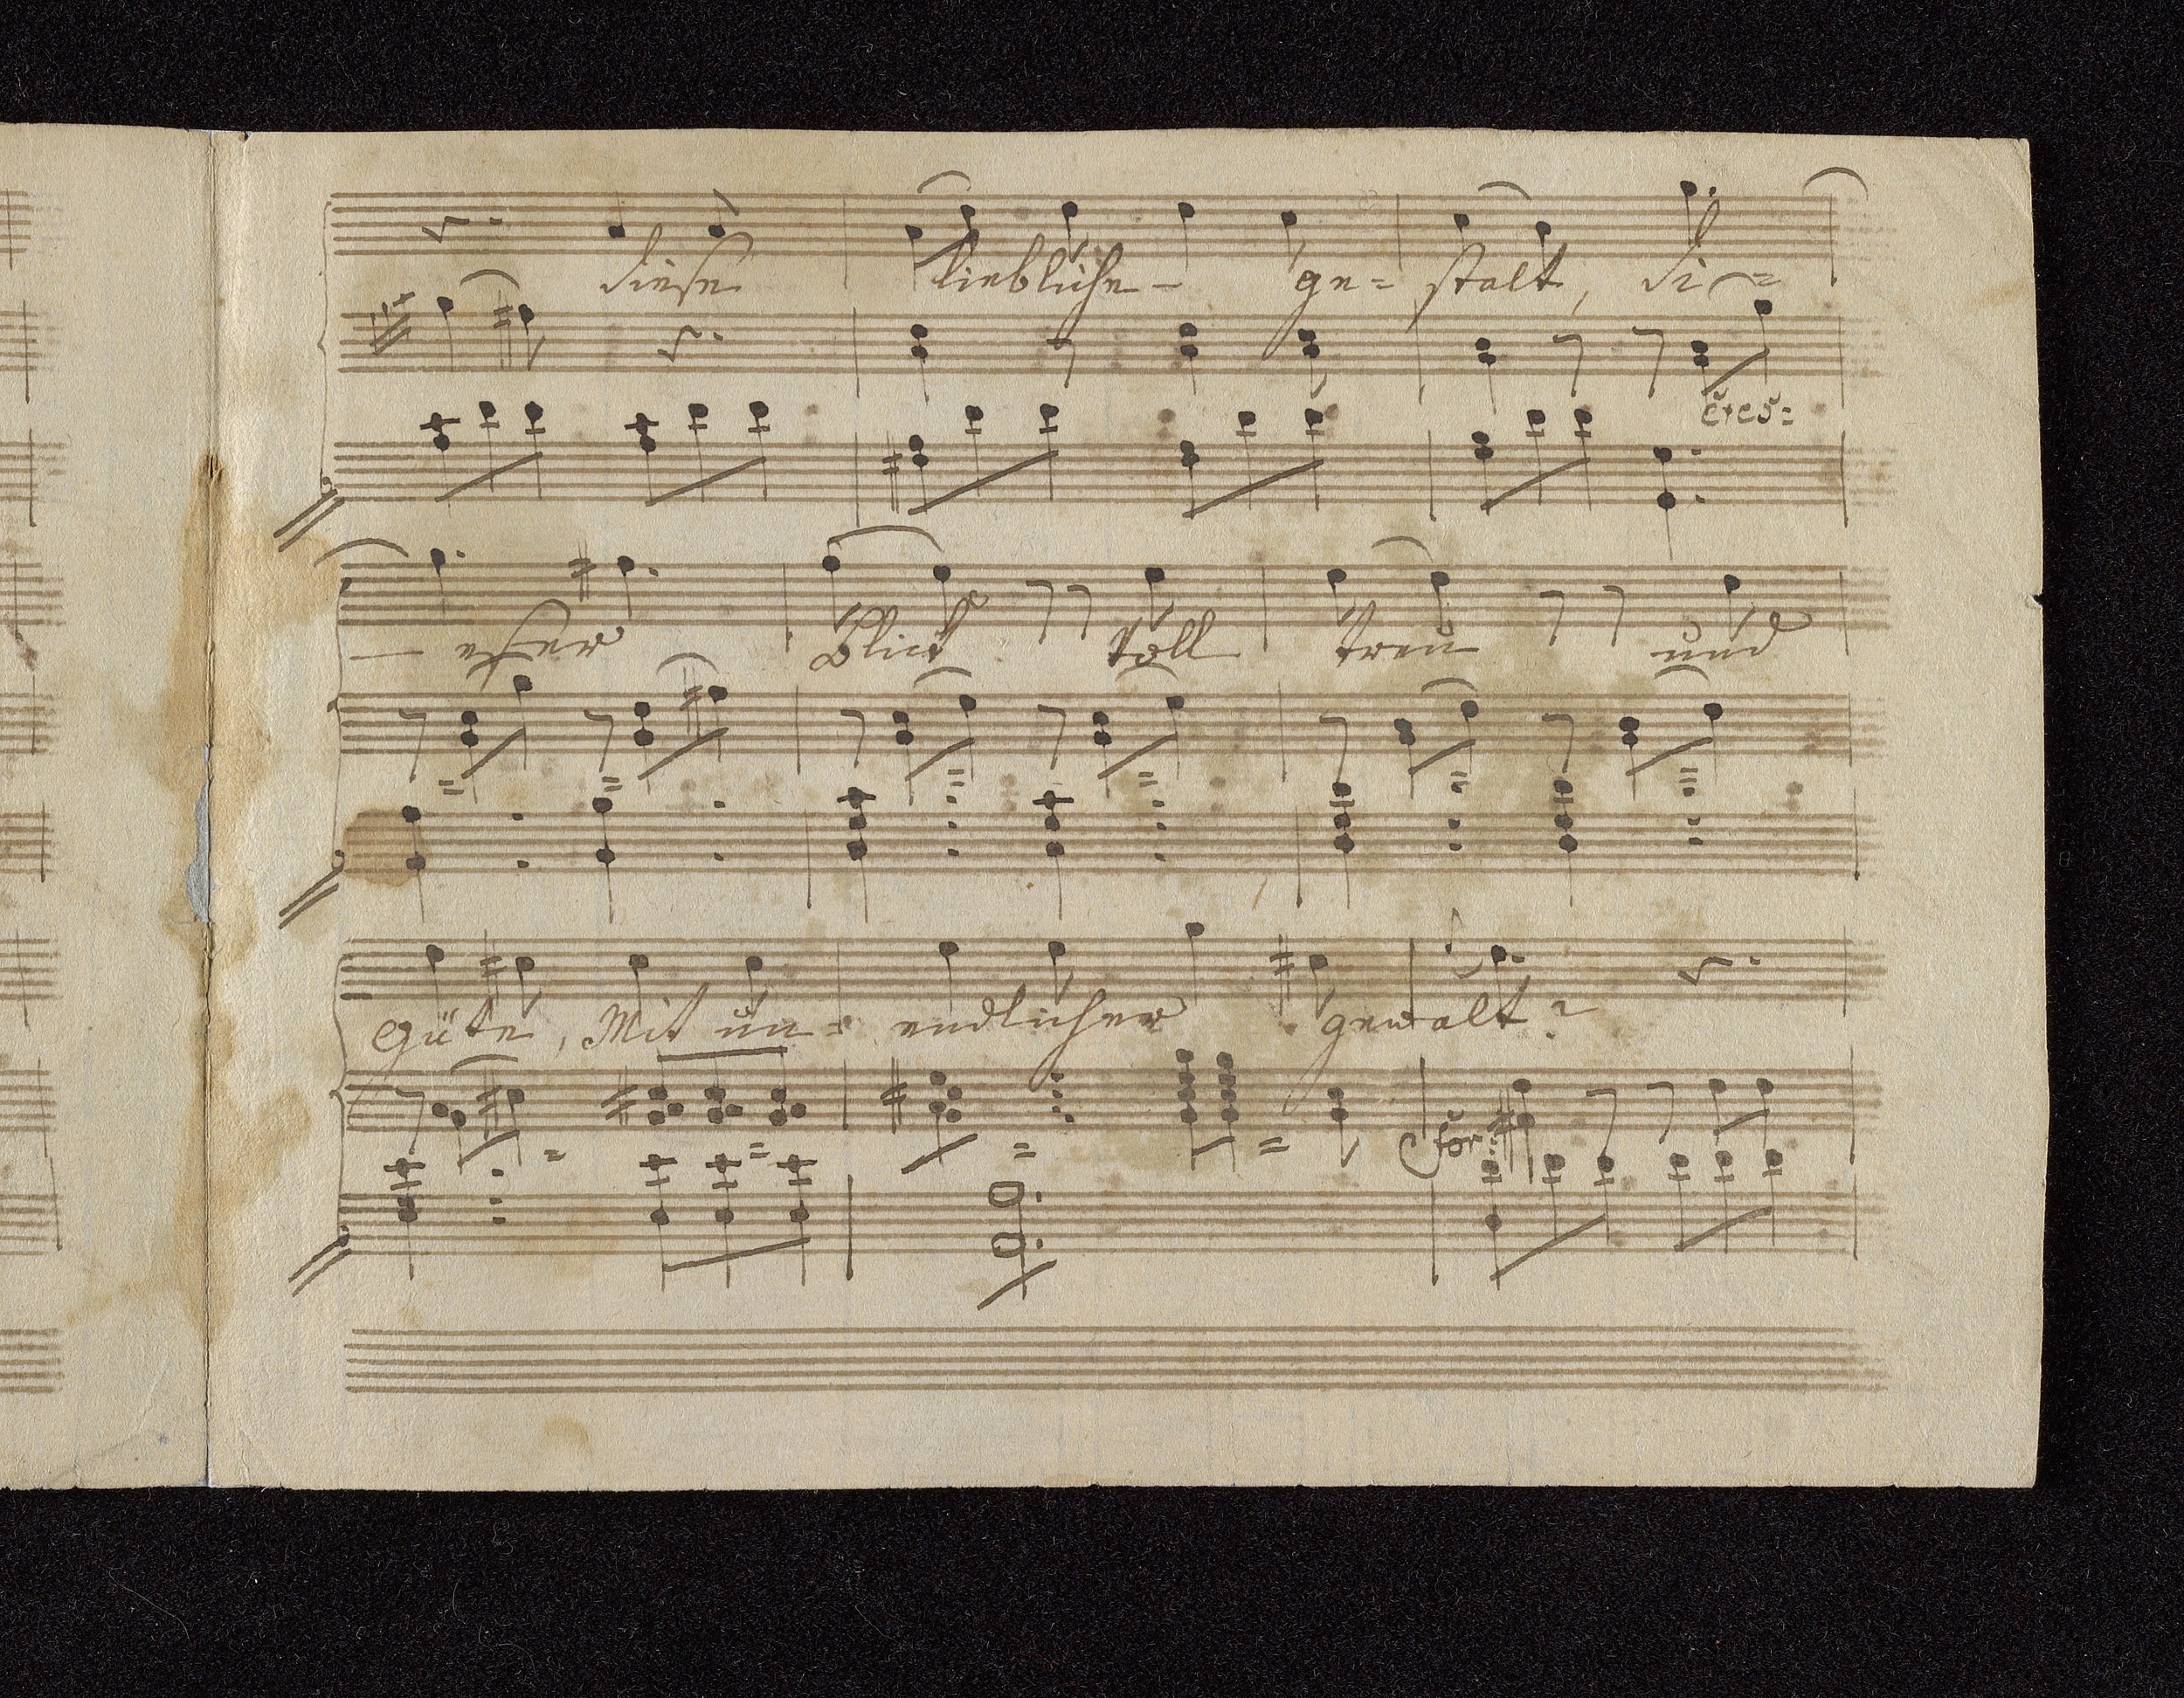 diese liebliche - ge = stalt, di =
cres:
— eser Blick voll treu und
Güte, Mit un = endlicher gewalt?
for: